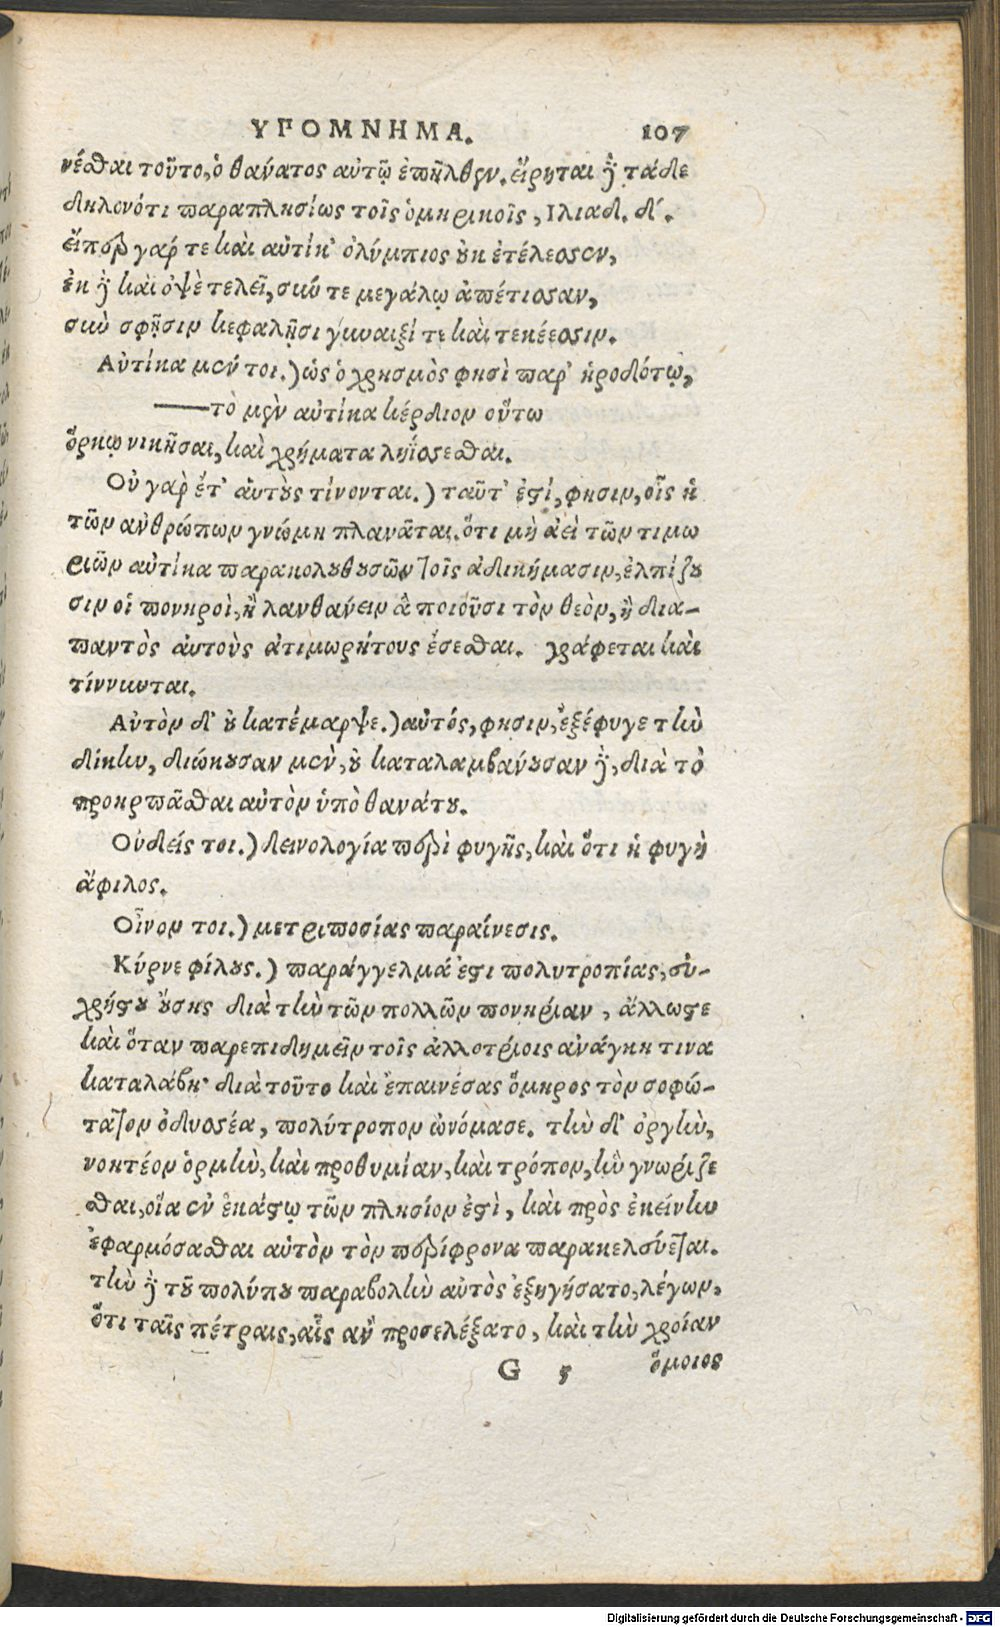 ΥΠΟΜΝΗΜΑ. 107
νέσθαι τοῦτο, ὁ θάνατος αὐτῷ ἐπῆλθεν. εἴρηται δὲ τάδε
δηλονότι παραπλησίως τοῖς ὁμηρικοῖς, Ιλιαδ. δ΄.
εἴπερ γάρ τε καὶ αὐτίκ' ὀλύμπιος οὐκ ἐτέλεσσεν,
ἐκ δὲ καὶ ὀψὲ τελεῖ, σύν τε μεγάλῳ ἀπέτισσαν,
σὺν σφῇσιν κεφαλῇσι γυναιξί τε καὶ τεκέεσσιν.
Αὐτίκα μέν τοι.) ὡς ὁ χρησμὸς φησὶ παρ' ἡροδότῳ,
——τὸ μὲν αὐτίκα κέρδιον οὕτω
ὅρκῳ νικῆσαι, καὶ χρήματα ληΐσσεσθαι.
Οὐ γὰρ ἔτ' αὐτοὺς τίνονται.) ταῦτ' ἐστί, φησιν, οἷς ἡ
τῶν ἀνθρώπων γνώμη πλανᾶται. ὅτι μὴ ἀεὶ τῶν τιμω
ριῶν αὐτίκα παρακολουθουσῶν τοῖς ἀδικήμασιν, ἐλπίζου
σιν οἱ πονηροὶ, ἢ λανθάνειν ἃ ποιοῦσι τὸν θεὸν, ἢ δια-
παντὸς αὐτοὺς ἀτιμωρήτους ἔσεσθαι. γράφεται καὶ
τίννυνται.
Αὐτὸν δ' οὐ κατέμαρψε.) αὐτός, φησιν, ἐξέφυγε τὴν
δίκην, διώκουσαν μὲν, οὐ καταλαμβάνουσαν δὲ, διὰ τὸ
προηρπᾶσθαι αὐτὸν ὑπὸ θανάτου.
Οὐδείς τοι.) δεινολογία περὶ φυγῆς, καὶ ὅτι ἡ φυγὴ
ἄφιλος.
Οἶνον τοι.) μετριποσίας παραίνεσις.
Κύρνε φίλους.) παράγγελμά ἐστι πολυτροπίας, εὐ-
χρήστου οὔσης διὰ τὴν τῶν πολλῶν πονηρίαν, ἄλλωστε
καὶ ὅταν παρεπιδημεῖν τοῖς ἀλλοτρίοις ἀνάγκη τινα
καταλάβῃ· διὰ τοῦτο καὶ ἐπαινέσας ὅμηρος τὸν σοφώ-
τατον ὀδυσσέα, πολύτροπον ὠνόμασε. τὴν δ' ὀργὴν,
νοητέον ὁρμὴν, καὶ προθυμίαν, καὶ τρόπον, ἣν γνωρίζε
σθαι, οἵα ἐν ἑκάστῳ τῶν πλησίον ἐστὶ, καὶ πρὸς ἐκείνην
ἐφαρμόσασθαι αὐτὸν τὸν περίφρονα παρακελεύεται.
τὴν δὲ τοῦ πολύπου παραβολὴν αὐτὸς ἐξηγήσατο, λέγων,
ὅτι ταῖς πέτραις, αἷς ἂν προσελέξατο, καὶ τὴν χροίαν
G 5 ὅμοιος
Digitalisierung gefördert durch die Deutsche Forschungsgemeinschaft - DFG